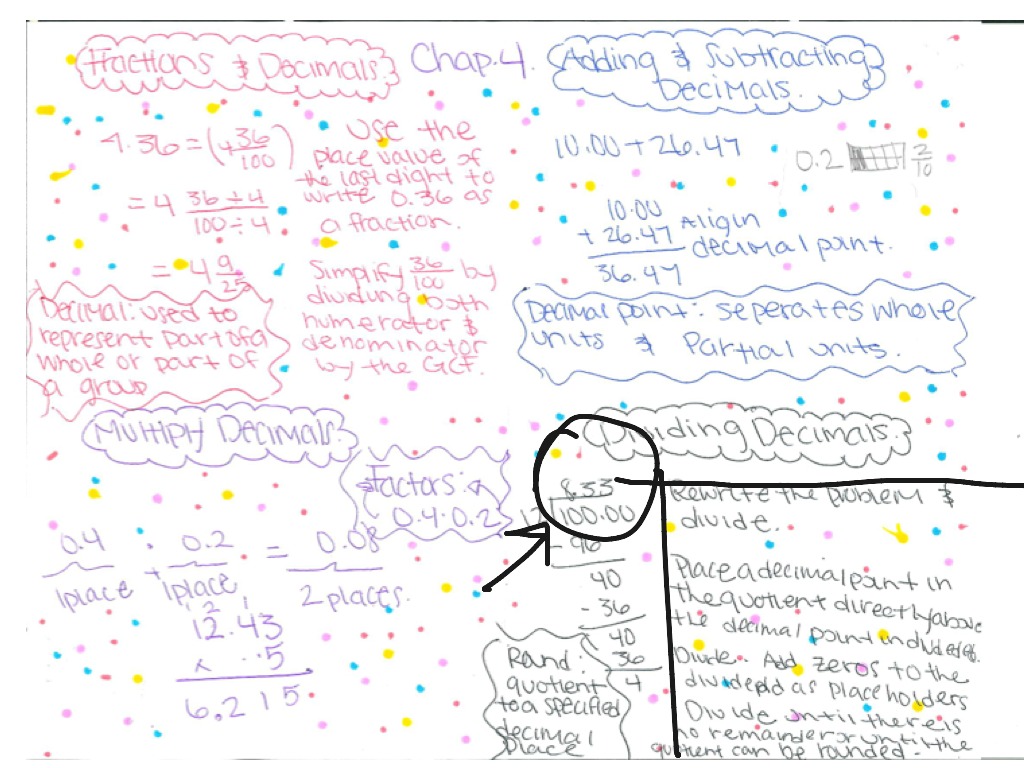 Fractions & Decimals.
Chap.4.
Adding & Subtracting
Decimals.
4.36 = (4 36/100)
= 4 36 ÷ 4 / 100 ÷ 4
= 4 9/25
Use the
place value of
the last dight to
write 0.36 as
a fraction.
Simplify 36/100 by
dividing both
numerator &
denominator
by the GCF.
Decimal: used to
represent part of a
whole or part of
a group
10.00 + 26.47
0.2 2/10
10.00
+ 26.47
36.47
Aligin
decimal point.
Decimal point: seperates whole
units & Partial units.
Multiply Decimals.
Factors:
0.4·0.2
0.4 · 0.2 = 0.08
1place + 1place 2 places.
1 2 1
12.43
x .5
6.215
Dividing Decimals.
8.33
100.00
- 96
40
- 36
40
36
4
Rewrite the problem &
divide.
Place a decimal point in
the quotient directly above
the decimal point in
Divide. Add zeros to the
as place holders
Divide until there is
no remainder or until the
quotient can be rounded.
Round:
quotient
to a specified
decimal
place